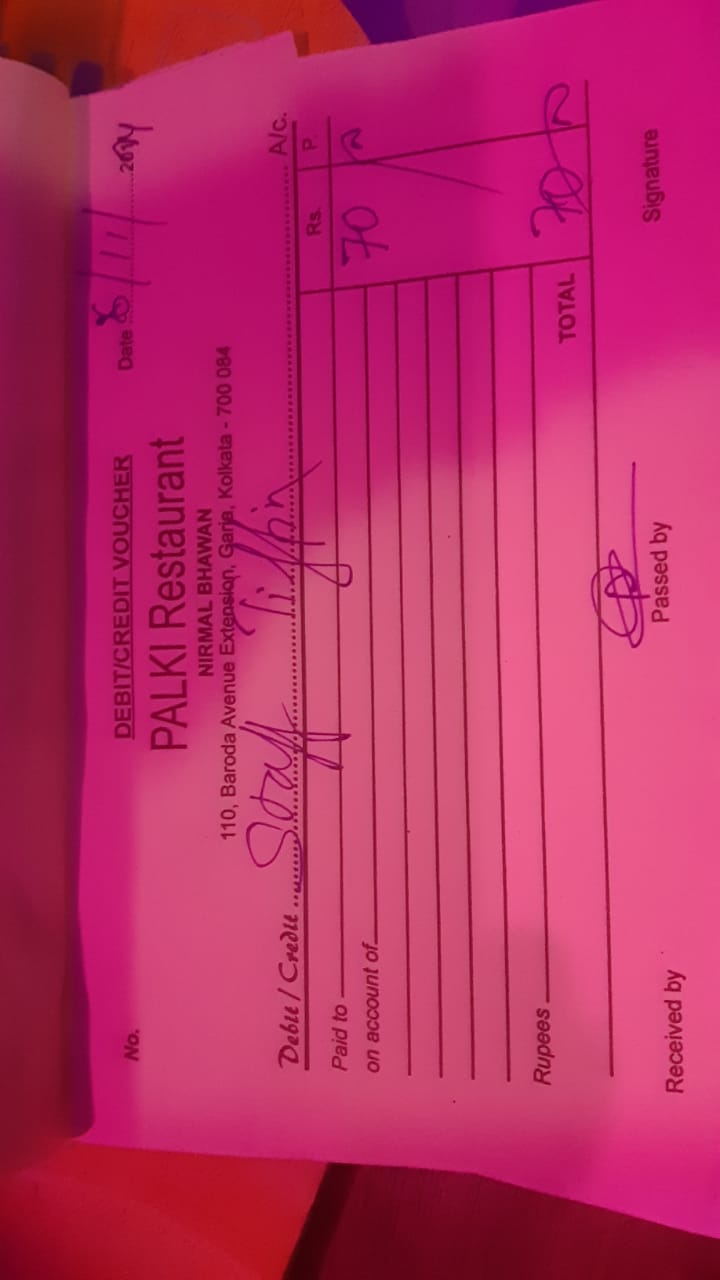 DEBIT/CREDIT VOUCHER
No. Date 8/11/2024
PALKI Restaurant
NIRMAL BHAWAN
110, Baroda Avenue Extension, Garia, Kolkata - 700 084
Debit / Credit Staff Tiffin A/c.
Rs. P.
Paid to 70
on account of
Rupees TOTAL 70
Received by Passed by Signature